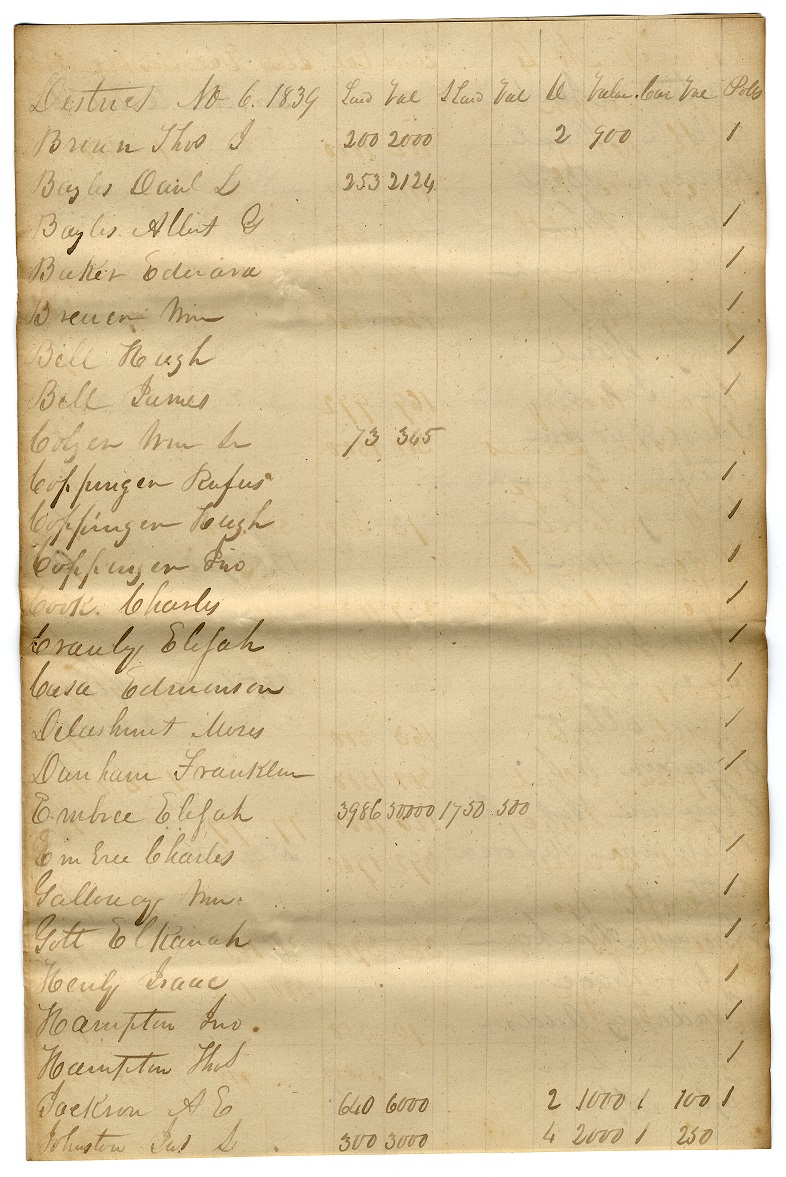 District No 6. 1839 Land Val S Land Val Sl Value Car Val Polls
Brown Thos J 200 2000 2 900 1
Bayles Danl L 253 2124
Bayles Albert G 1
Baker Edward 1
Brewer Wm 1
Bell Hugh 1
Bell James 1
Colyer Wm Sr 73 365
Coppinger Rufus 1
Coppinger Hugh 1
Coppinger Jno 1
Cook Charles 1
Cranly Elijah 1
Casa Edmonson 1
Delashmit Moses 1
Dunham Franklin 1
Embree Elijah 3986 50,000 1750 500
Embree Charles 1
Galloway Wm. 1
Gott Elkanah 1
Henly Isaac 1
Hampton Jno. 1
Hampton Thos 1
Jackson A E 640 6000 2 1000 1 100 1
Johnston Jas S 300 3000 4 2000 1 250